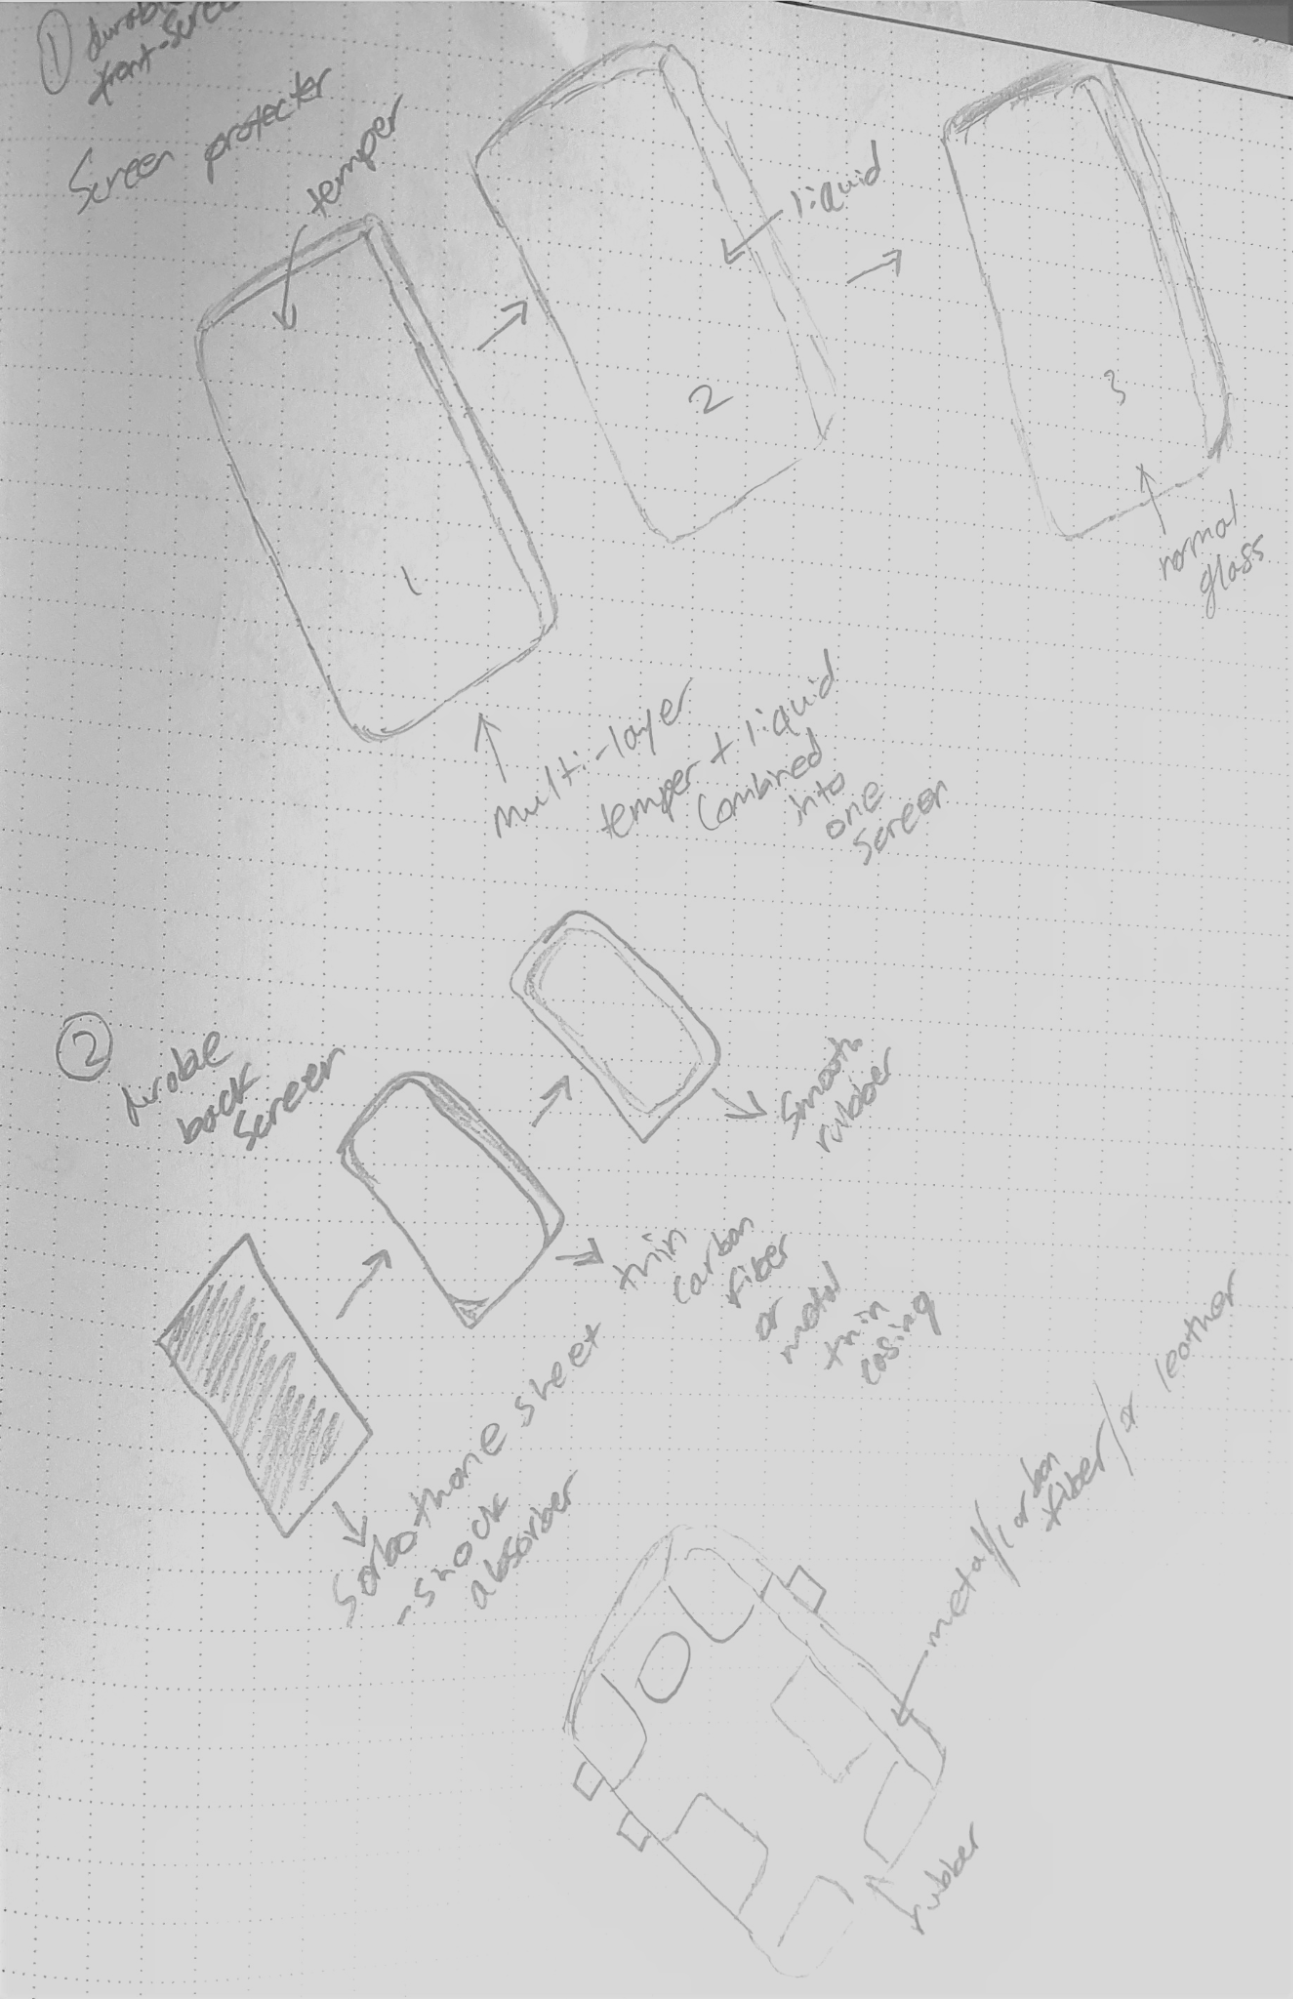 ①
front-scree
Screen protecter
temper
liquid
1
2
3
normal
glass
multi-layer
temper + liquid
combined
into
one
screen
②
back
screen
smooth
rubber
thin
carbon
fiber
or
metal
thin
casing
Sorbothane sheet
-shock
absorber
metal/carbon
fiber/or leather
rubber